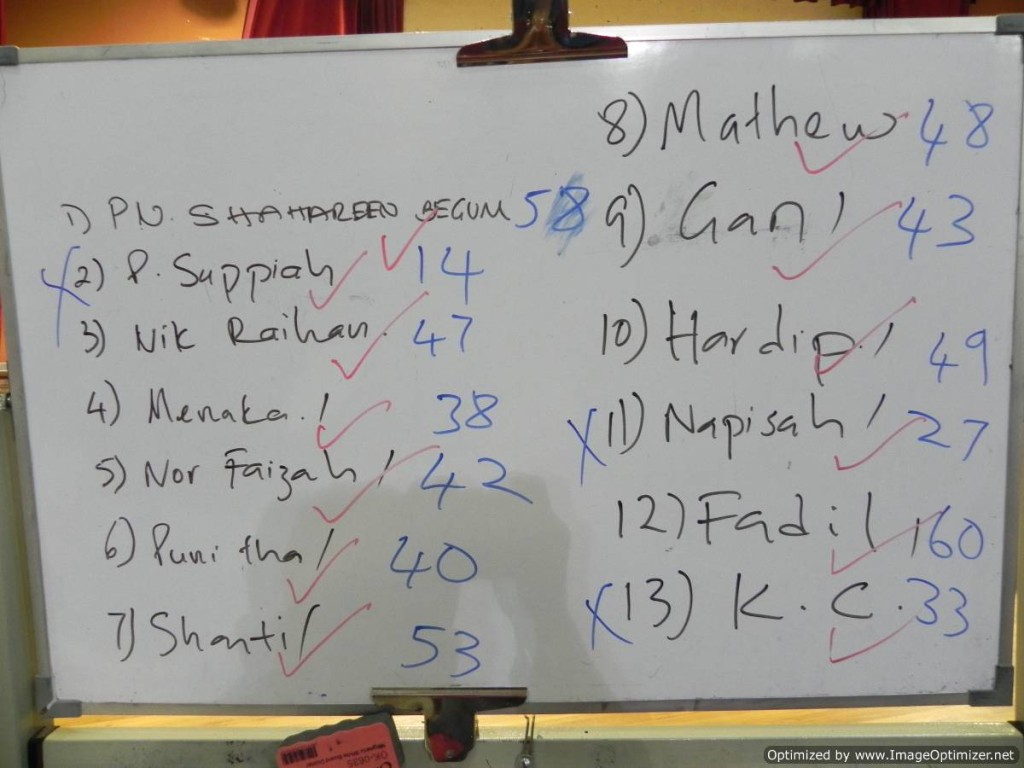 1) PN. SHAHAREEN BEGUM 58
X 2) P. Suppiah 14
3) Nik Raihan. 47
4) Menaka. / 38
5) Nor Faizah / 42
6) Punitha / 40
7) Shanti / 53
8) Mathew 48
9) Gan / 43
10) Hardip. / 49
X 11) Napisah / 27
12) Fadil / 60
X 13) K. C. 33
Optimized by www.ImageOptimizer.net